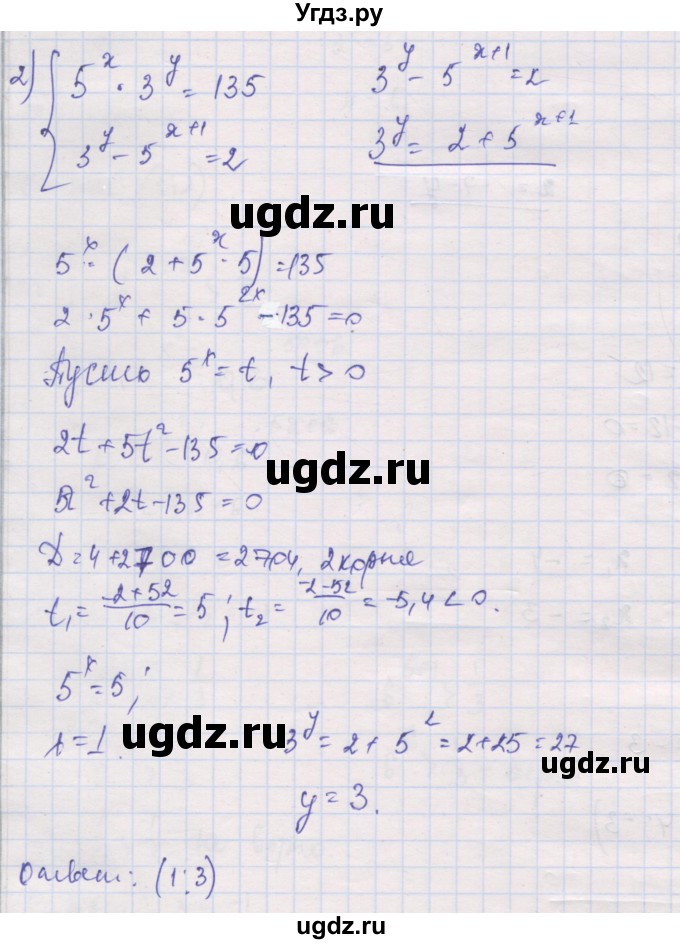 Угдз.ру
2) { 5^x · 3^y = 135
3^y - 5^{x+1} = 2
3^y - 5^{x+1} = 2
3^y = 2 + 5^{x+1}
ugdz.ru
5^x · (2 + 5^x · 5) = 135
2 · 5^x + 5 · 5^{2x} - 135 = 0
Пусть 5^x = t, t > 0
2t + 5t^2 - 135 = 0
ugdz.ru
5t^2 + 2t - 135 = 0
D = 4 + 2700 = 2704, 2 корня
t_1 = \frac{-2+52}{10} = 5; t_2 = \frac{-2-52}{10} = -5,4 < 0.
5^x = 5;
ugdz.ru
x = 1.
3^y = 2 + 5^2 = 2 + 25 = 27
ugdz.ru
y = 3.
Ответ: (1; 3)
ugdz.ru